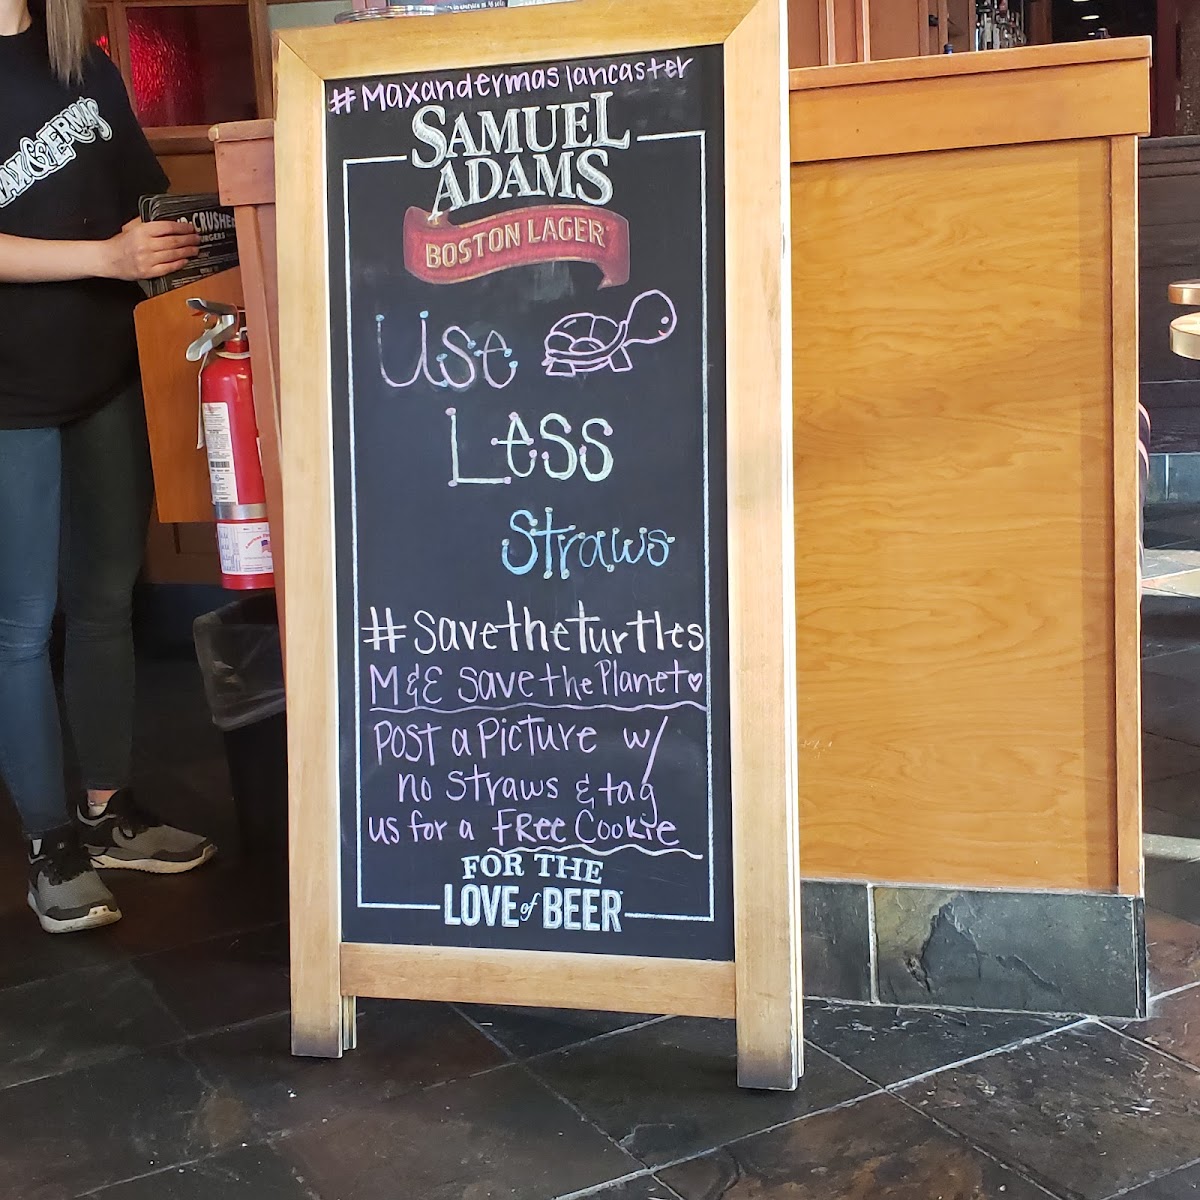 #Maxandermaslancaster
SAMUEL
ADAMS
BOSTON LAGER
Use
Less
Straws
#savetheturtles
M&E save the Planet
Post a Picture w/
no straws & tag
us for a FRee Cookie
FOR THE
LOVE of BEER
AX&ERMA'S
CRUSHER
BURGERS